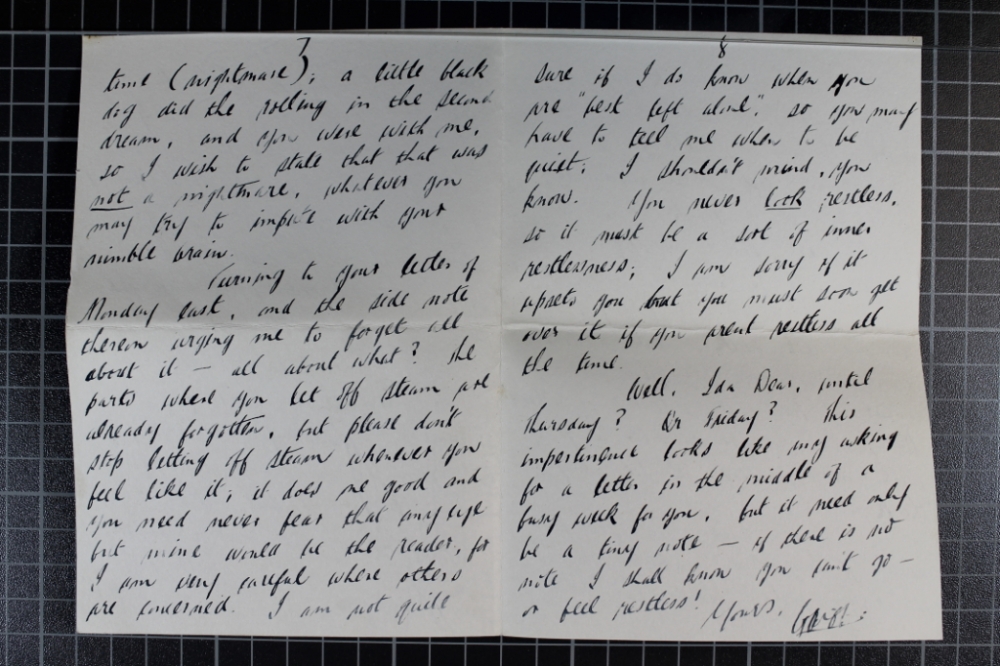 7
time (nightmare); a little black
dog did the rolling in the second
dream, and you were with me,
so I wish to state that that was
not a nightmare, whatever you
may try to impute with your
nimble brain.
Turning to your letter of
Monday last, and the side note
thereon urging me to forget all
about it — all about what? The
parts where you let off steam are
already forgotten, but please don't
stop letting off steam whenever you
feel like it; it does me good and
you need never fear that any eye
but mine would be the reader, for
I am very careful where others
are concerned. I am not quite
8
sure if I do know when you
are "best left alone", so you may
have to tell me when to be
quiet; I shouldn't mind, you
know. You never look restless,
so it must be a sort of inner
restlessness; I am sorry if it
upsets you but you must soon get
over it if you aren't restless all
the time.
Well, Ida Dear, until
Thursday? Or Friday? This
impertinence looks like my asking
for a letter in the middle of a
busy week for you, but it need only
be a tiny note — if there is no
note I shall know you can't go —
or feel restless!
Yours,